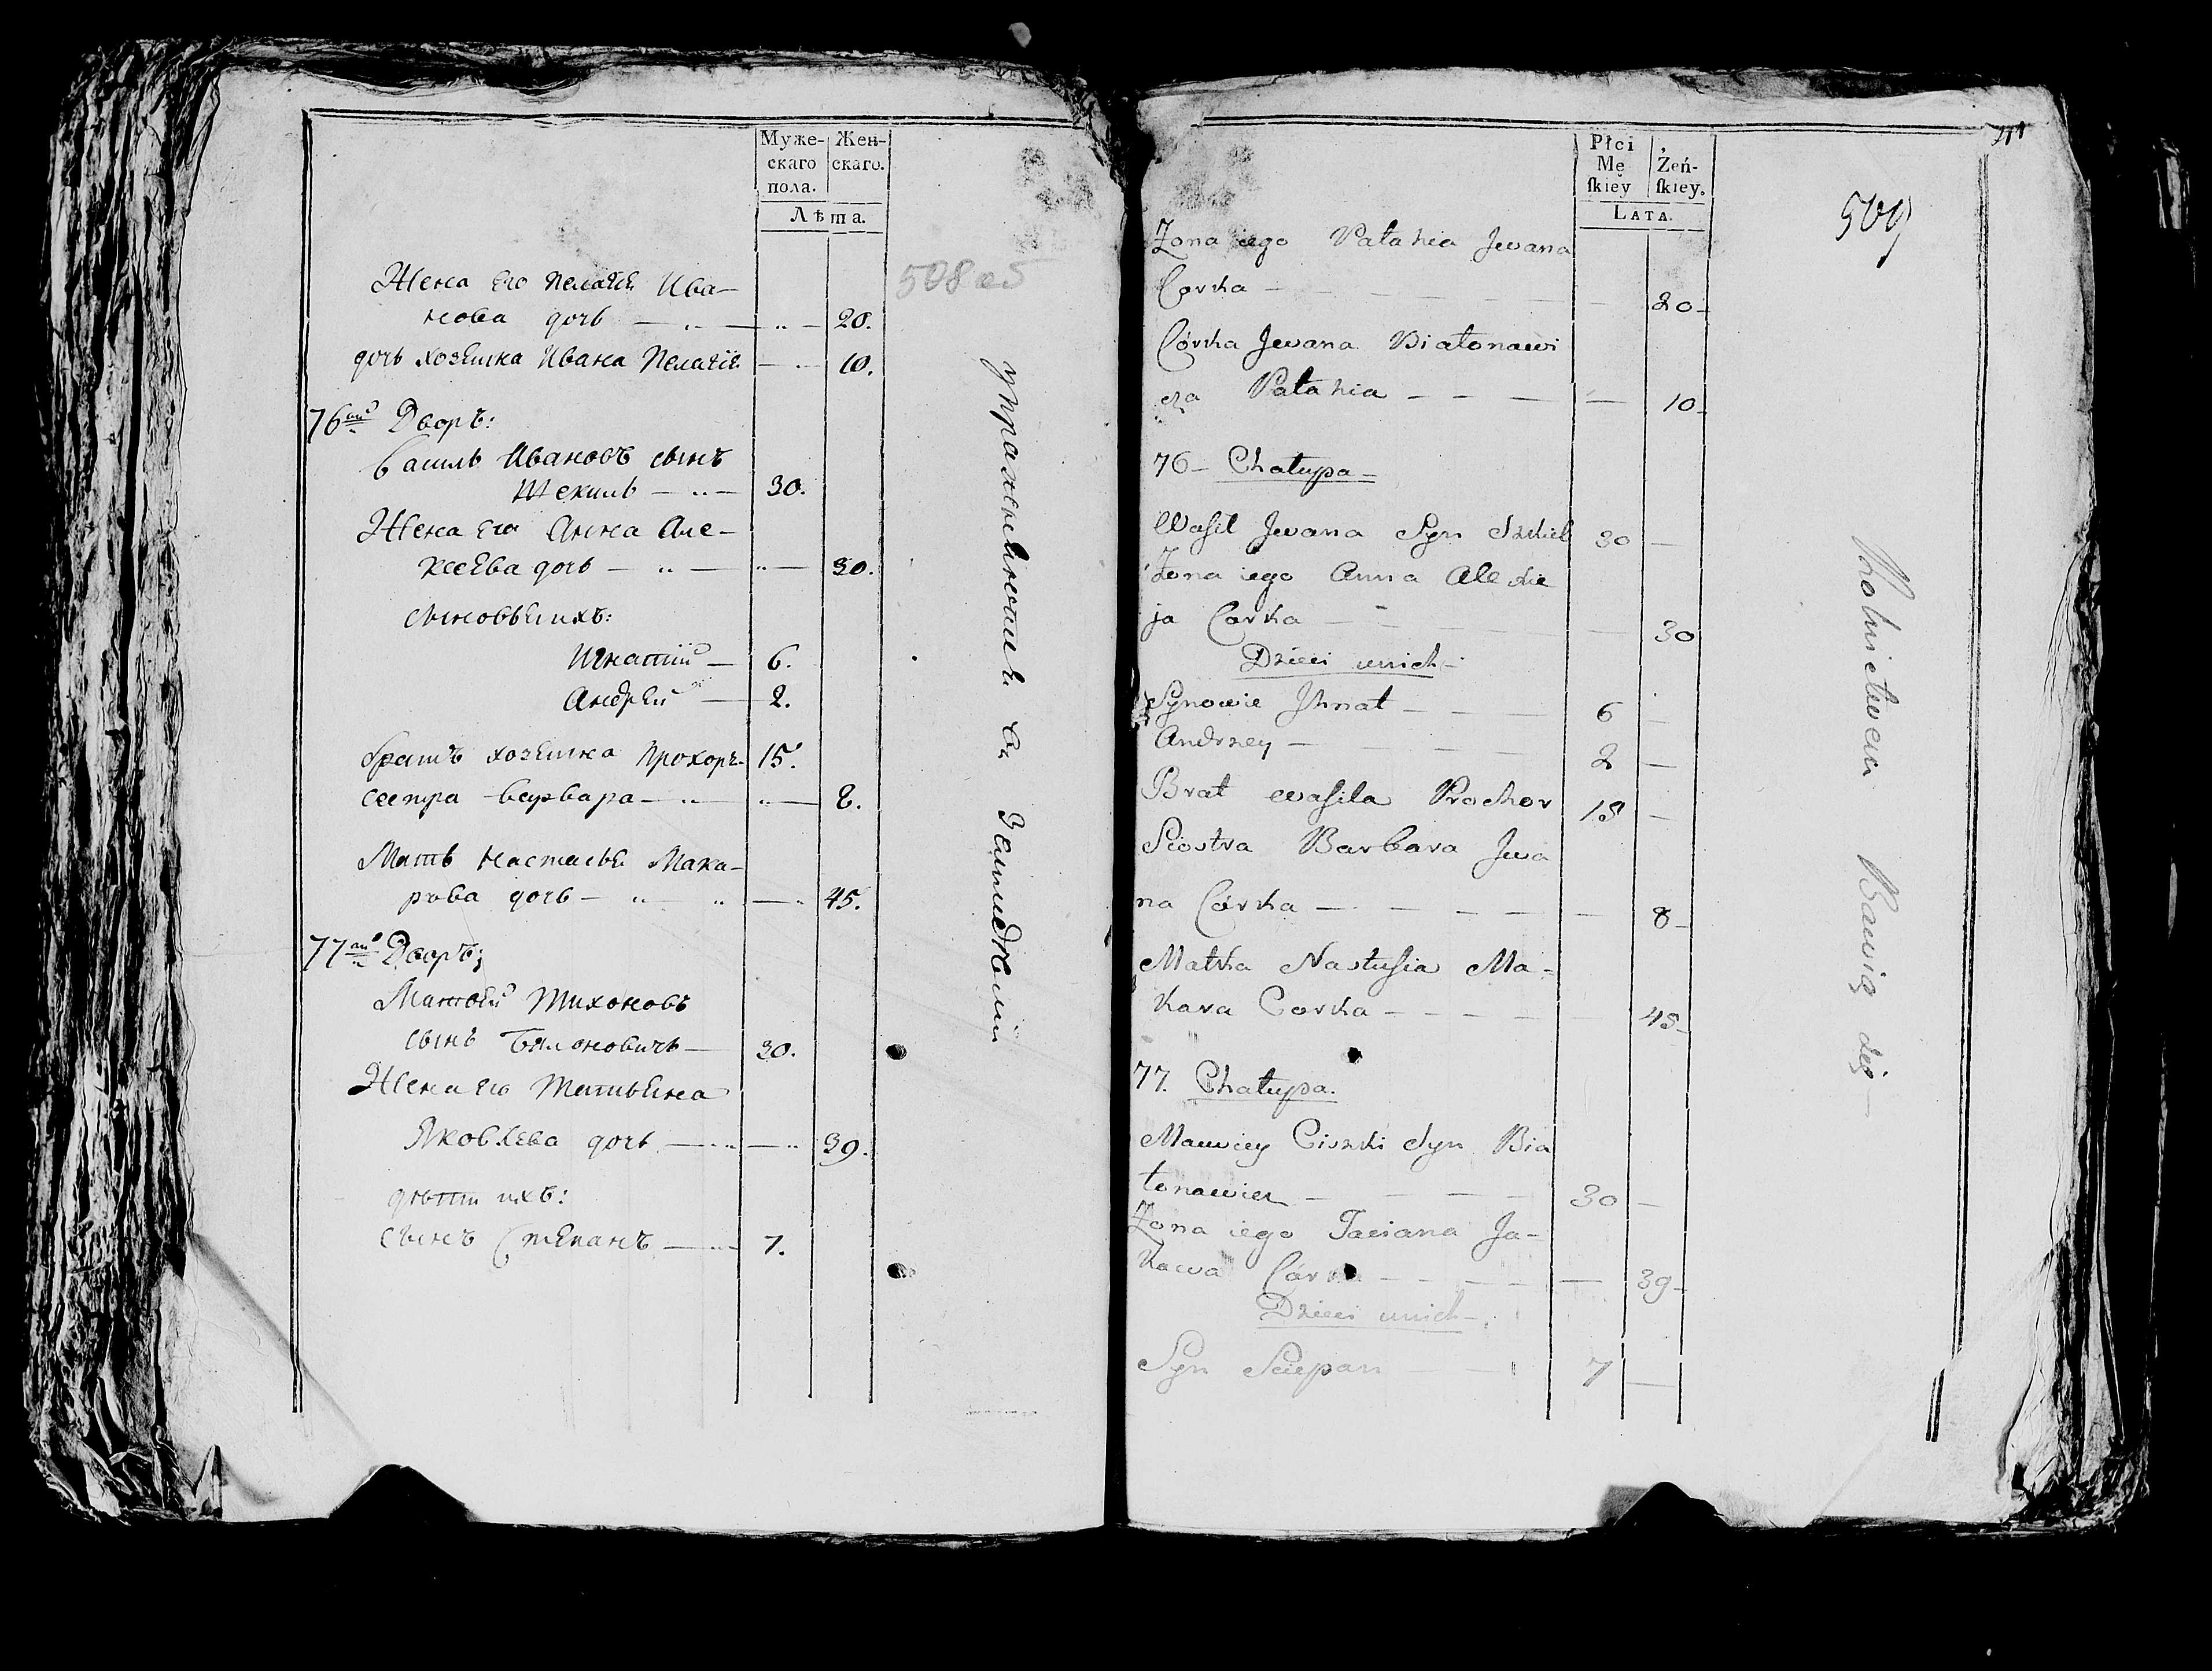 Муже-
скаго
пола.
Жен-
скаго.
Лѣта.
508 об
Жена его Пелагѣя Ива-
нова дочь — „ — „ — 20.
дочь хозяина Ивана Пелагiя — 10.
76й Дворъ:
Василь Ивановъ сынъ
Шекиль — „ — 30.
Жена его Анна Але-
ксѣева дочь — „ — „ — 30.
сыновья ихъ:
Игнатiй — 6.
Андрей — 2.
братъ хозяина Прохоръ 15.
сестра Варвара — „ — „ — 8.
Мать Настасья Мака-
рова дочь — „ — „ — 45.
77й Дворъ;
Матвѣй Тихоновъ
сынъ Бялоновичъ — 30.
Жена его Татьяна
Яковлева дочь — „ — „ 39.
дѣти ихъ:
сынъ Степанъ — 7.
упражняются въ Земледѣлiи
Płci
Mę
ſkiey
Żeń-
ſkiey.
LATA.
509
Zona iego Pałahia Jwana
Corka — 20
Córka Jwana Białonawi
cza Pałahia — 10
76 — Chałupa —
Waſil Jwana Syn Szkiel 30 —
Zona iego Anna Alexie
ja Corka — 30
Dzieci unich —
Synowie Jhnat — 6 —
Andrzey — 2 —
Brat Waſila Prochor 15 —
Siostra Barbara Jwa
na Córka — 8
Matka Nastuſia Ma-
kara Corka — 45
77. Chałupa.
Mawiey Ciszki Syn Bia
łonawicz — 30 —
Zona iego Taciana Ja-
kowa Córka — 39
Dzieci unich —
Syn Sciepan — 7 —
Rolnictwem Bawią się —